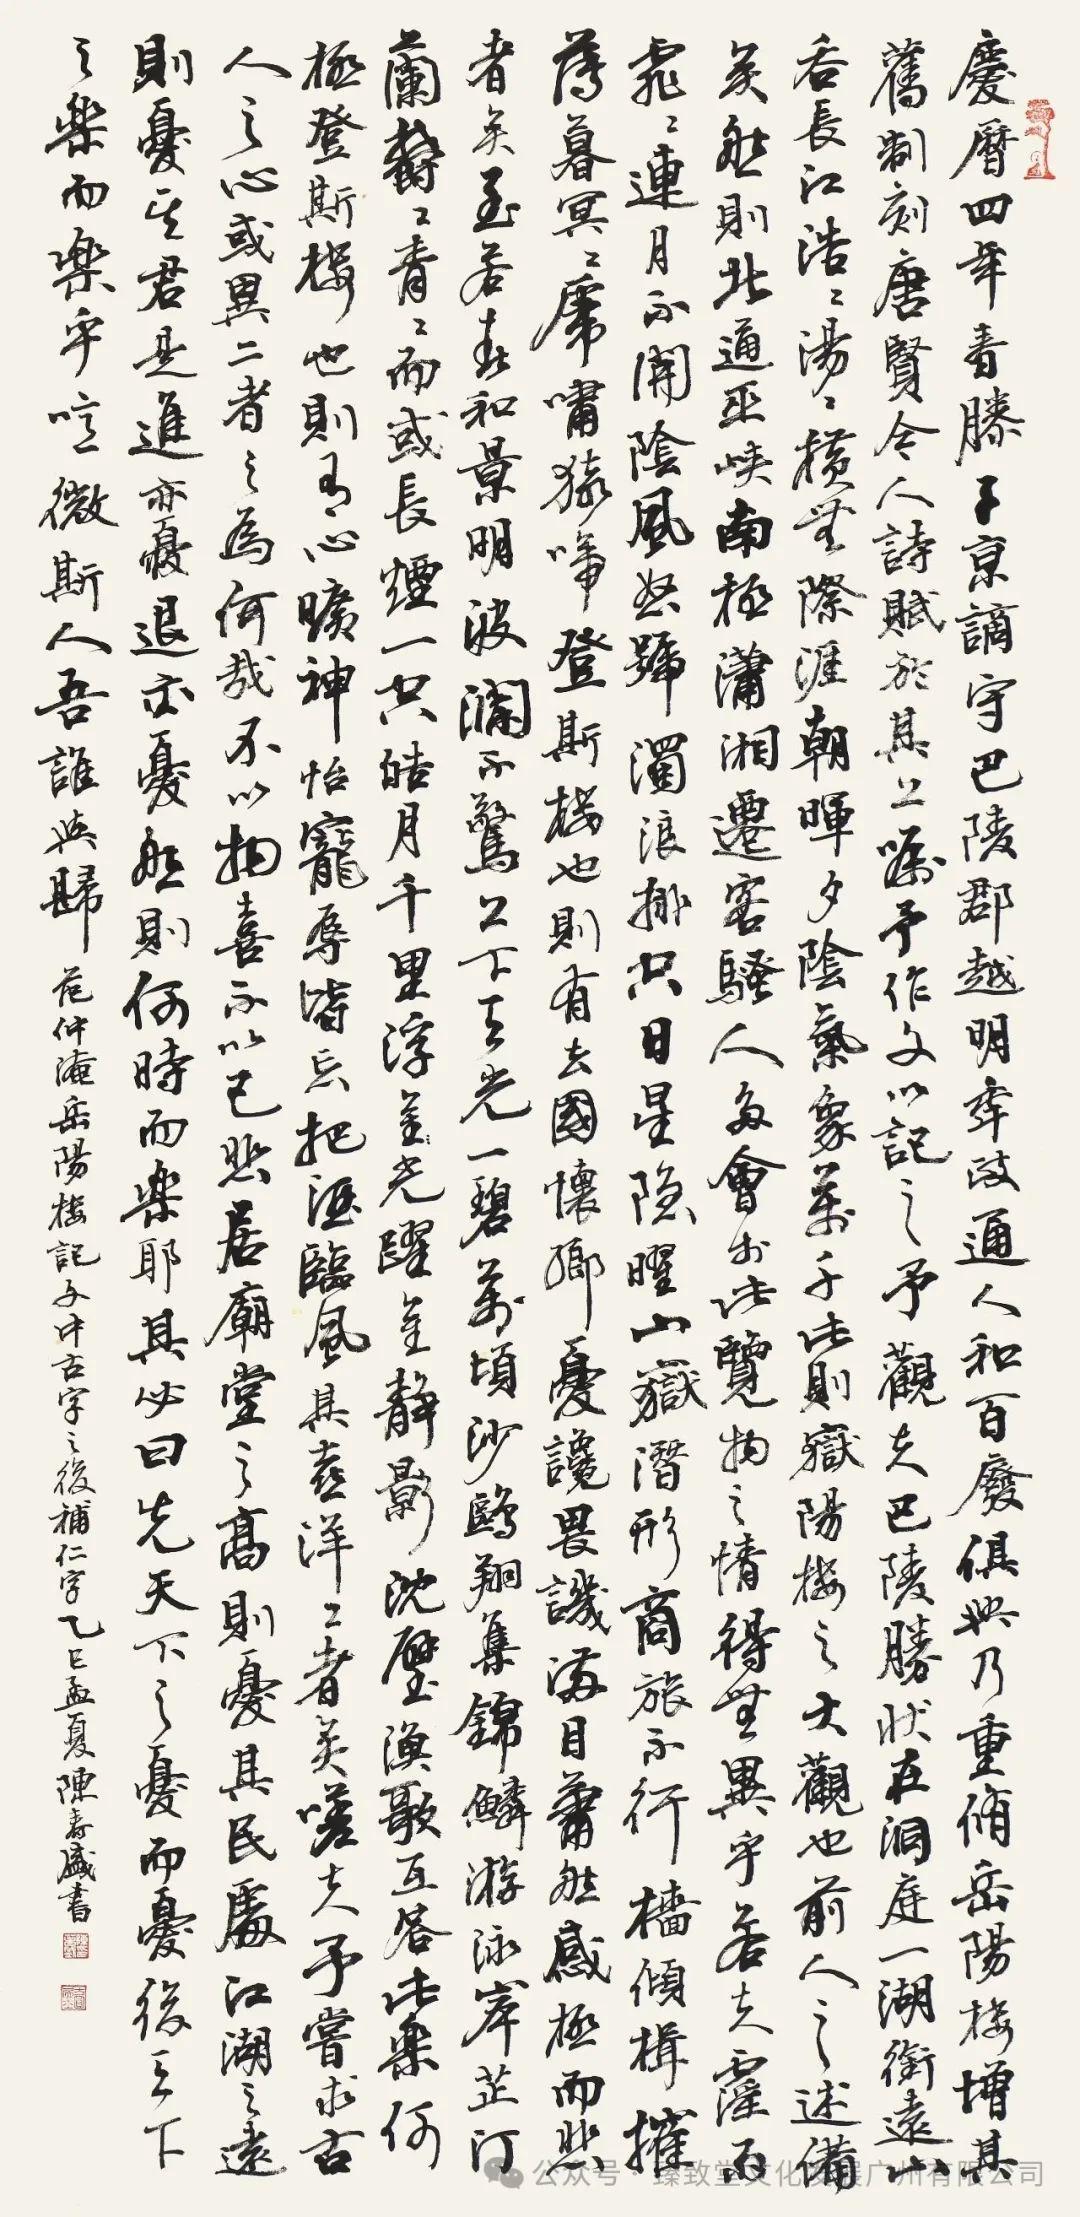 慶曆四年春滕子京謫守巴陵郡越明年政通人和百廢俱興乃重脩岳陽樓增其
舊制刻唐賢今人詩賦於其上囑予作文以記之予觀夫巴陵勝狀在洞庭一湖銜遠山
吞長江浩〻湯〻橫無際涯朝暉夕陰氣象萬千此則嶽陽樓之大觀也前人之述備
矣然則北通巫峽南極瀟湘遷客騷人多會於此覽物之情得無異乎若夫霪雨
霏〻連月不開陰風怒號濁浪排空日星隐曜山嶽潛形商旅不行檣傾楫摧
薄暮冥〻虎嘯猿啼登斯樓也則有去國懷鄉憂讒畏譏滿目蕭然感極而悲
者矣至若春和景明波瀾不驚上下天光一碧萬頃沙鷗翔集錦鱗游泳岸芷汀
蘭欝〻青〻而或長煙一空皓月千里浮金光躍金靜影沈璧漁歌互答此樂何
極登斯樓也則有心曠神怡寵辱皆忘把酒臨風其喜洋〻者矣嗟夫予嘗求古
人之心或異二者之為何哉不以物喜不以己悲居廟堂之高則憂其民處江湖之遠
則憂其君是進亦憂退亦憂然則何時而樂耶其必曰先天下之憂而憂後天下
之樂而樂乎噫微斯人吾誰與歸
范仲淹岳陽樓記文中古字之後補仁字乙巳孟夏陳壽盛書
公众号·臻致堂文化发展广州有限公司